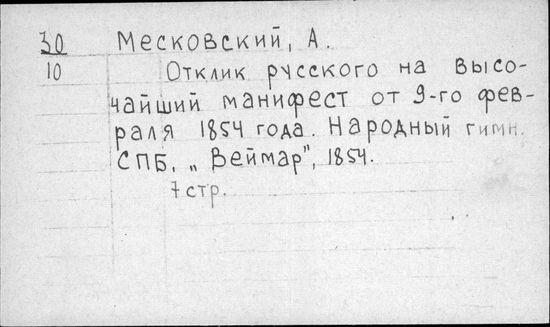 30 Месковский, А.
10 Отклик русского на высо-
чайший манифест от 9-го фев-
раля 1854 года. Народный гимн.
СПБ, „Веймар", 1854.
7 стр.